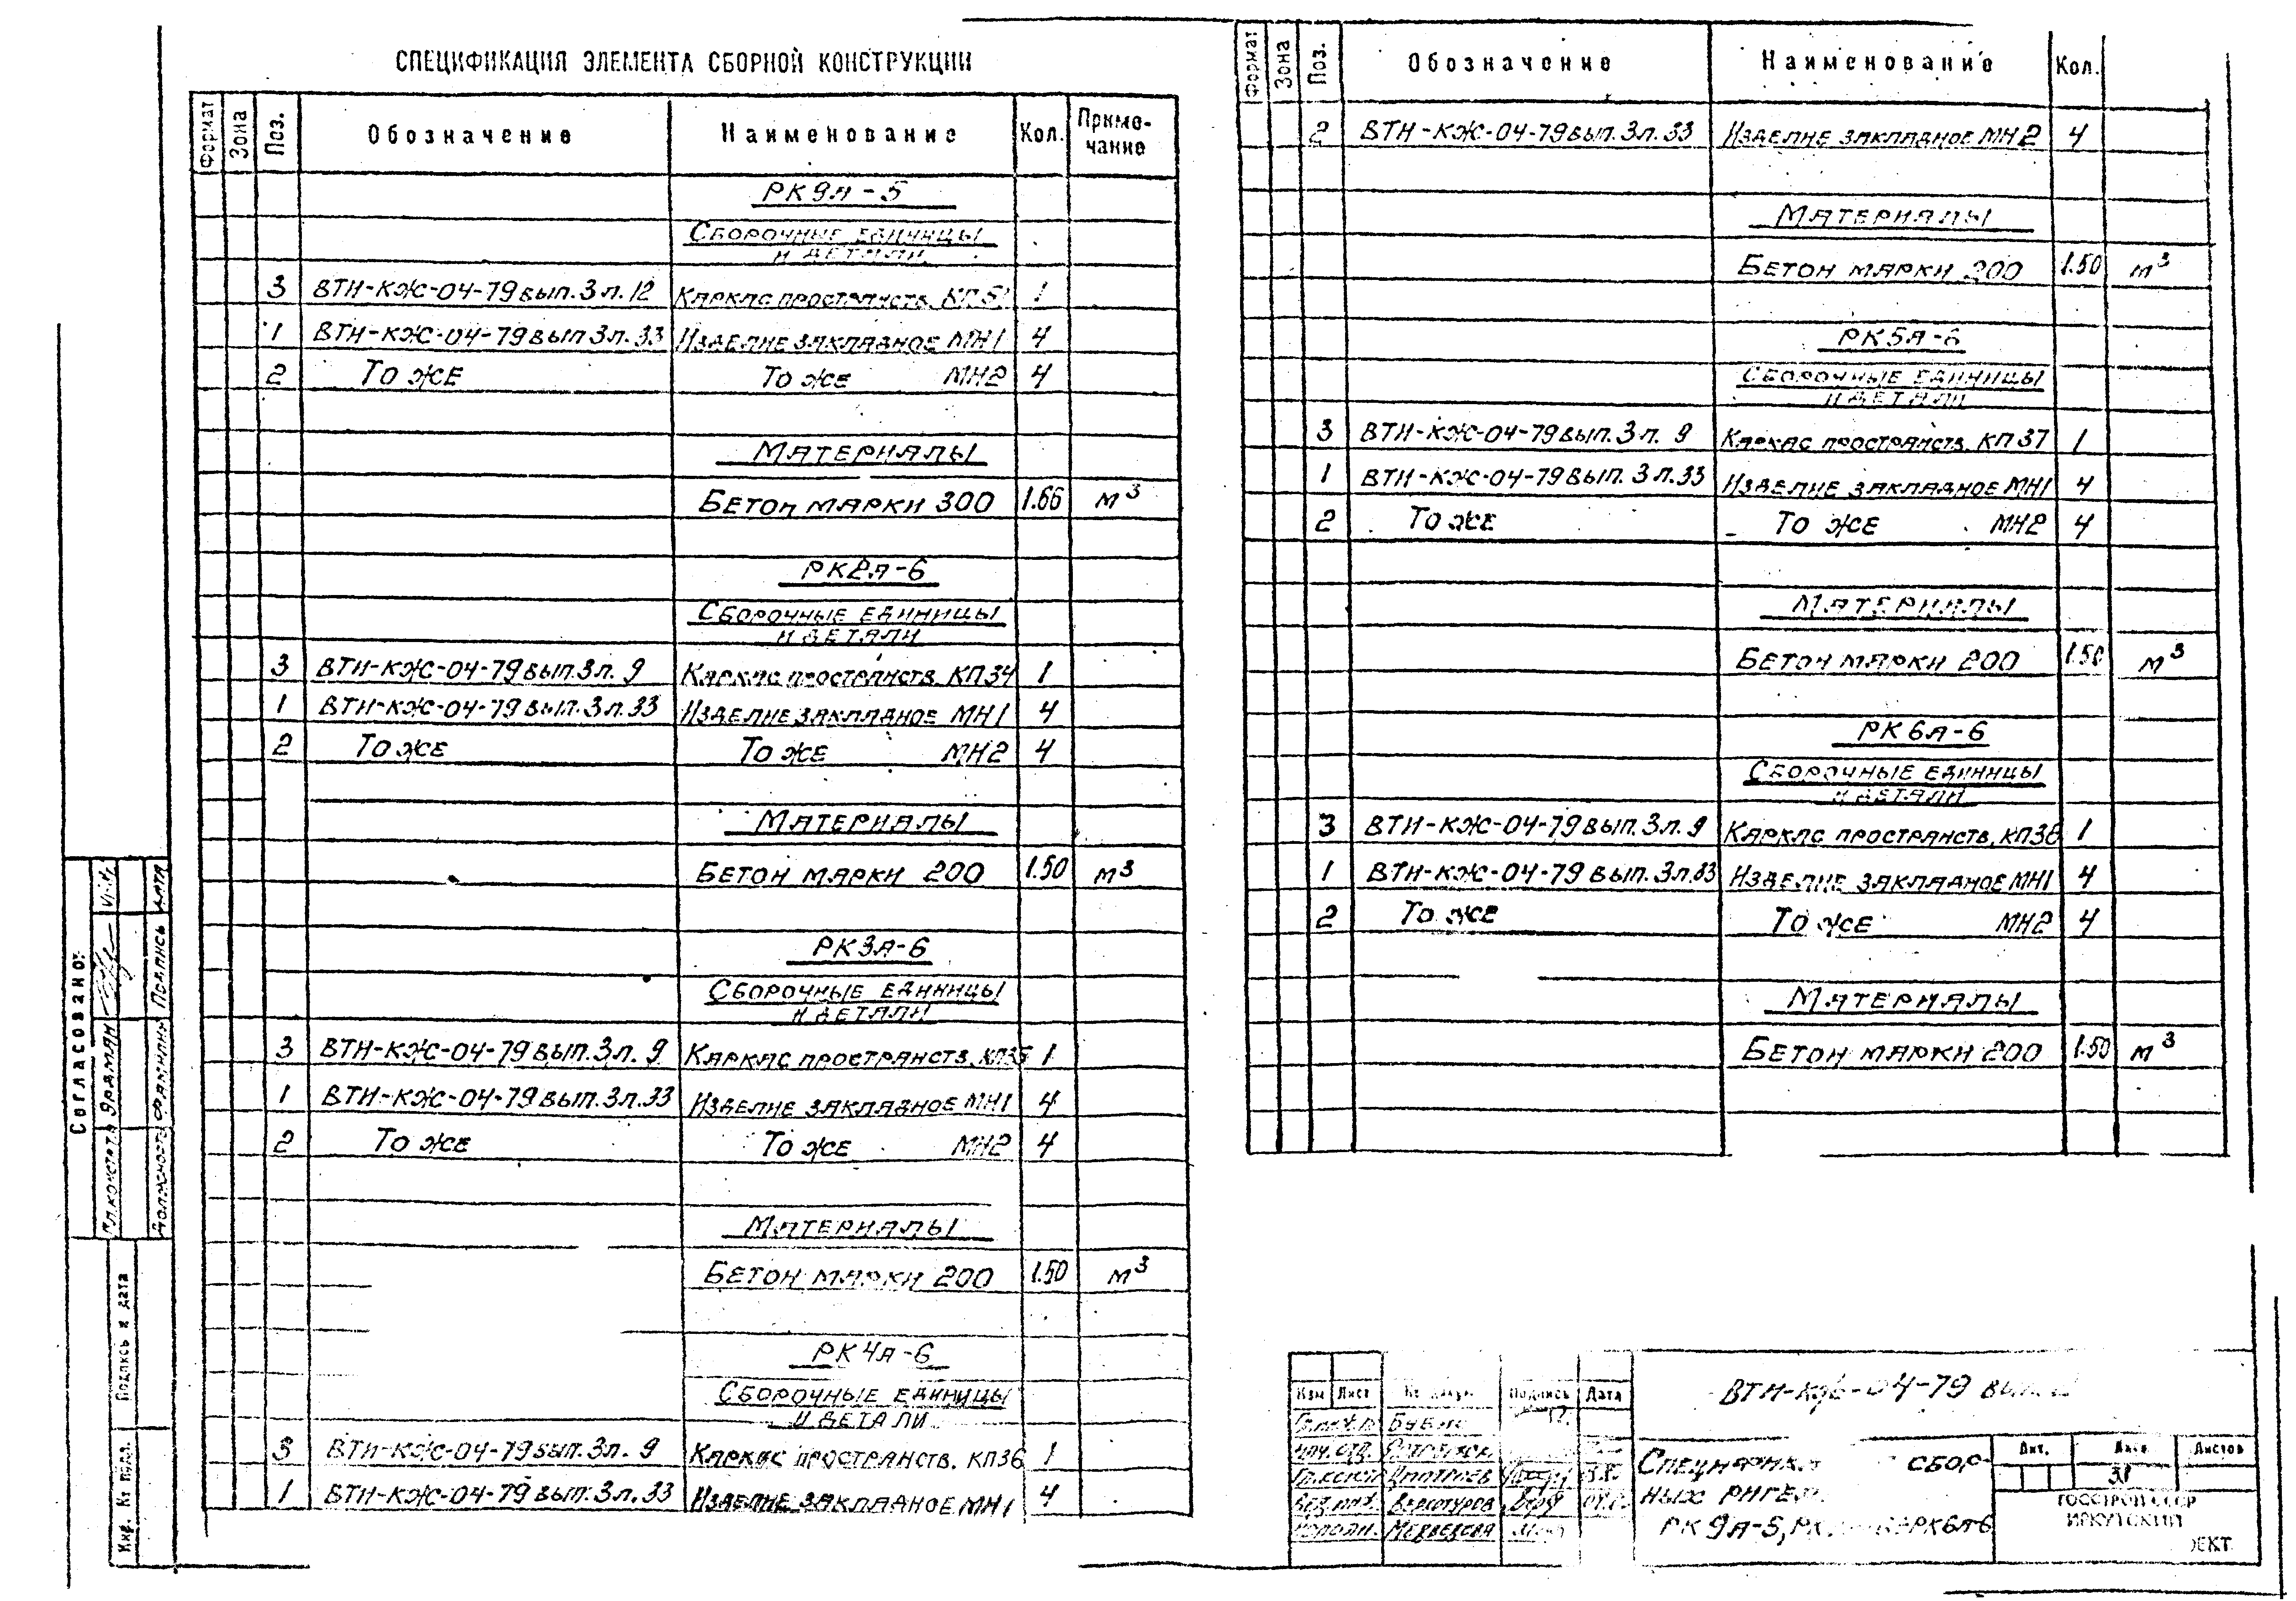 СПЕЦИФИКАЦИЯ ЭЛЕМЕНТА СБОРНОЙ КОНСТРУКЦИИ
Формат Зона Поз. Обозначение Наименование Кол. Приме-
чание
РК9А-5
СБОРОЧНЫЕ ЕДИНИЦЫ
И ДЕТАЛИ
3 ВТИ-КЖ-04-79 вып. 3 л. 12 КАРКАС ПРОСТРАНСТВ. КП51 1
1 ВТИ-КЖ-04-79 вып 3 л. 33 ИЗДЕЛИЕ ЗАКЛАДНОЕ МН1 4
2 ТО ЖЕ ТО ЖЕ МН2 4
МАТЕРИАЛЫ
БЕТОН МАРКИ 300 1.66 м³
РК2А-6
СБОРОЧНЫЕ ЕДИНИЦЫ
И ДЕТАЛИ
3 ВТИ-КЖ-04-79 вып. 3 л. 9 КАРКАС ПРОСТРАНСТВ. КП34 1
1 ВТИ-КЖ-04-79 вып. 3 л. 33 ИЗДЕЛИЕ ЗАКЛАДНОЕ МН1 4
2 ТО ЖЕ ТО ЖЕ МН2 4
МАТЕРИАЛЫ
БЕТОН МАРКИ 200 1.50 м³
РК3А-6
СБОРОЧНЫЕ ЕДИНИЦЫ
И ДЕТАЛИ
3 ВТИ-КЖ-04-79 вып. 3 л. 9 КАРКАС ПРОСТРАНСТВ. КП35 1
1 ВТИ-КЖ-04-79 вып. 3 л. 33 ИЗДЕЛИЕ ЗАКЛАДНОЕ МН1 4
2 ТО ЖЕ ТО ЖЕ МН2 4
МАТЕРИАЛЫ
БЕТОН МАРКИ 200 1.50 м³
РК4А-6
СБОРОЧНЫЕ ЕДИНИЦЫ
И ДЕТАЛИ
3 ВТИ-КЖ-04-79 вып. 3 л. 9 КАРКАС ПРОСТРАНСТВ. КП36 1
1 ВТИ-КЖ-04-79 вып. 3 л. 33 ИЗДЕЛИЕ ЗАКЛАДНОЕ МН1 4
Формат Зона Поз. Обозначение Наименование Кол.
2 ВТИ-КЖ-04-79 вып. 3 л. 33 ИЗДЕЛИЕ ЗАКЛАДНОЕ МН2 4
МАТЕРИАЛЫ
БЕТОН МАРКИ 200 1.50 м³
РК5А-6
СБОРОЧНЫЕ ЕДИНИЦЫ
И ДЕТАЛИ
3 ВТИ-КЖ-04-79 вып. 3 л. 9 КАРКАС ПРОСТРАНСТВ. КП37 1
1 ВТИ-КЖ-04-79 вып. 3 л. 33 ИЗДЕЛИЕ ЗАКЛАДНОЕ МН1 4
2 ТО ЖЕ ТО ЖЕ МН2 4
МАТЕРИАЛЫ
БЕТОН МАРКИ 200 1.50 м³
РК6А-6
СБОРОЧНЫЕ ЕДИНИЦЫ
И ДЕТАЛИ
3 ВТИ-КЖ-04-79 вып. 3 л. 9 КАРКАС ПРОСТРАНСТВ. КП38 1
1 ВТИ-КЖ-04-79 вып. 3 л. 33 ИЗДЕЛИЕ ЗАКЛАДНОЕ МН1 4
2 ТО ЖЕ ТО ЖЕ МН2 4
МАТЕРИАЛЫ
БЕТОН МАРКИ 200 1.50 м³
Согласовано:
Гл.констр. ЭРДМАН
Должность Фамилия Подпись Дата
Подпись и дата
Инв. № подл.
Изм Лист № докум. Подпись Дата
ВТИ-КЖ-04-79
НАЧ. ОТД.
ДМИТРИЕВ
ВЕРХОТУРОВ
ИСПОЛН. МЕДВЕДЕВА
СБОР-
НЫХ
РК9А-5, РК6А-6
Лит. Лист Листов
31
ГОССТРОЙ СССР
ИРКУТСКИЙ